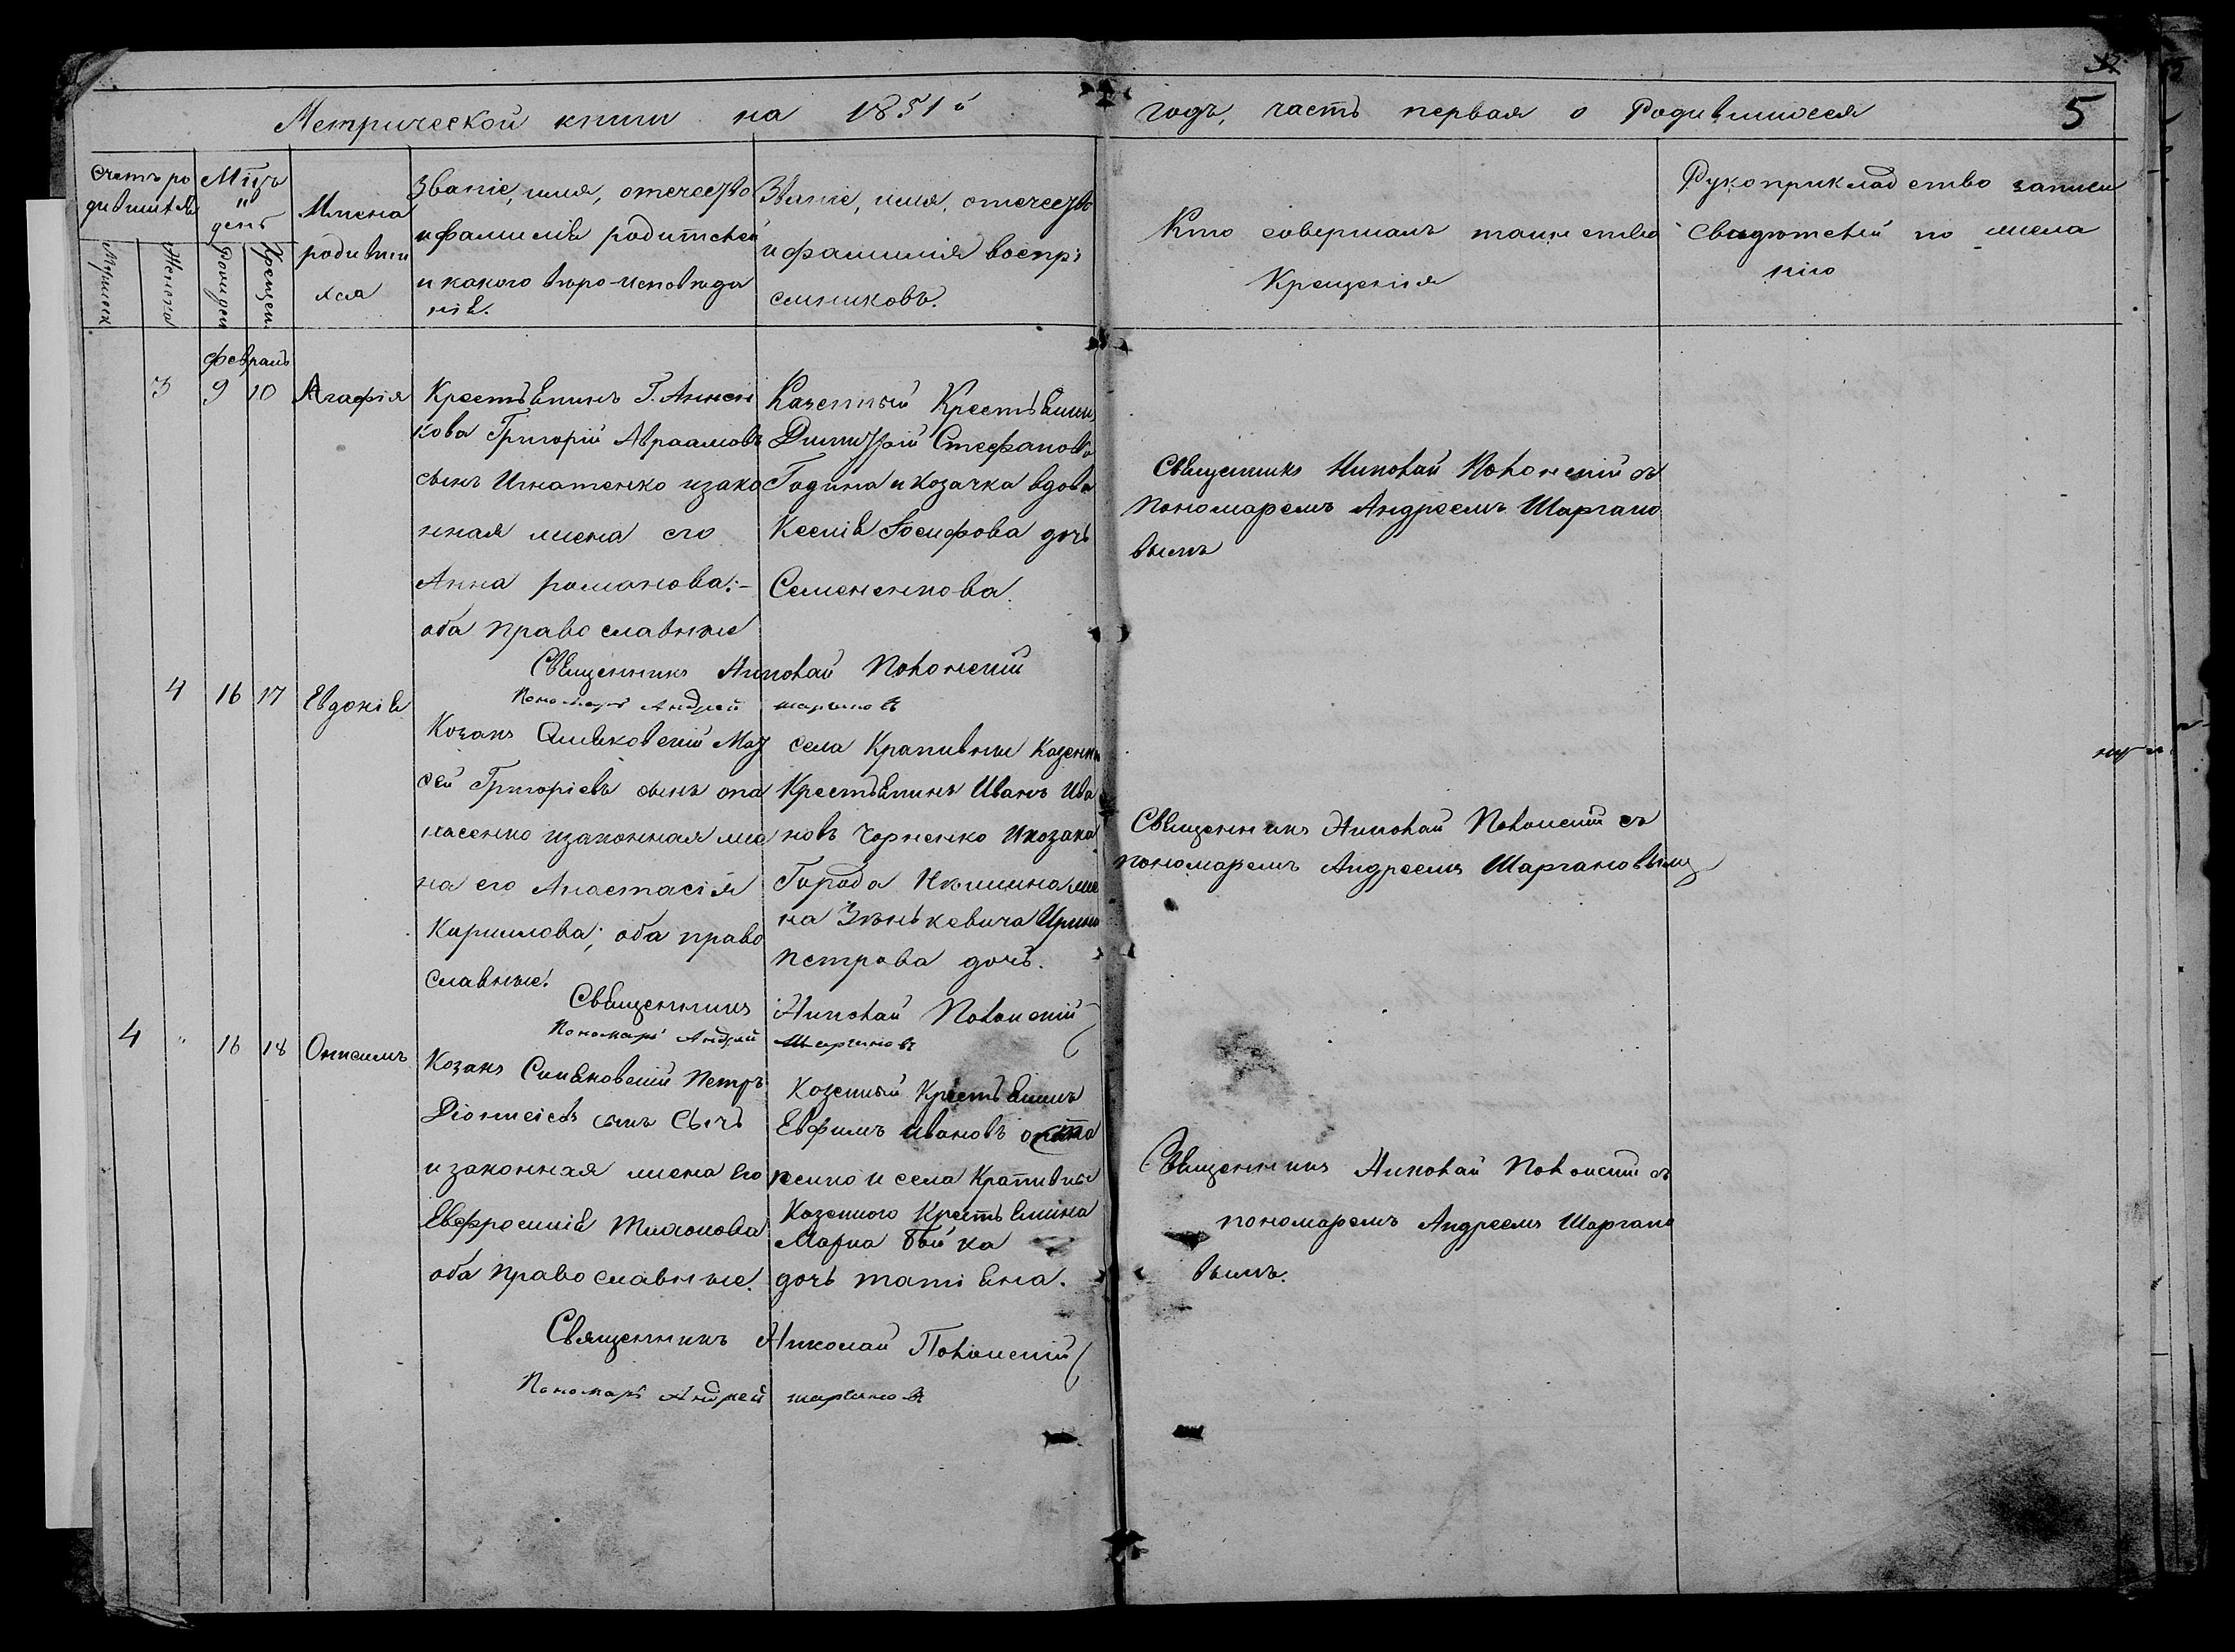 Метрической книги на 1851й годъ, часть первая о Родившихся
5
Счетъ ро
дившихся
Мужеск
Женска
Мцъ
и
день
Рожден
Крещен.
Имена
родивши
хся
Званіе, имя, отечество
и фамилія родителей
и какого вѣро-исповѣда
нія.
Званіе, имя, отечество
и фамилія воспрі
емниковъ.
Кто совершалъ таинство
Крещенія
Рукоприкладство записи
свидѣтелей по жела
нію
февраль
3 9 10 Агафія
Крестьянинъ Г.
кова Григорій Авраамовъ
сынъ Игнатенко изако
нная жена его
Анна романова:-
оба православные
Казенный Крестьянин
Димитрій Стефановъ
Година и козачка вдова
Ксенія Іосифова дочь
Семененкова.
Священникъ Николай съ
пономаремъ Андреемъ Шаргано
вымъ
Священникъ Николай
Пономарь Андрей шаргановъ
4 16 17 Евдокія
Козакъ Мой
сей Григоріевъ сынъ опа
насенко изаконная же
на его Анастасія
Кирилова; оба право
славные.
села Крапивны Казенны
Крестьянинъ Иванъ Ива
новъ Чорненко Икозака
Города Нѣжина же
на Зѣнькевича Ирина
петрова дочь.
Священникъ Николай съ
пономаремъ Андреемъ Шаргановымъ
Священникъ Николай
Пономарь Андрей Шаргановъ
4 " 16 18 Онисимъ
Козакъ Петръ
Діонисіевъ сынъ Сычъ
изаконная жена его
Евфросинія Тихонова
оба православные.
Козенный Крестьянинъ
Евфимъ Ивановъ опана
сенко и села Крапивны
Козенного Крестьянина
Марка Бойка
дочь татіяна.
Священникъ Николай съ
пономаремъ Андреемъ Шаргано
вымъ.
Священникъ Николай
Пономарь Андрей шаргановъ